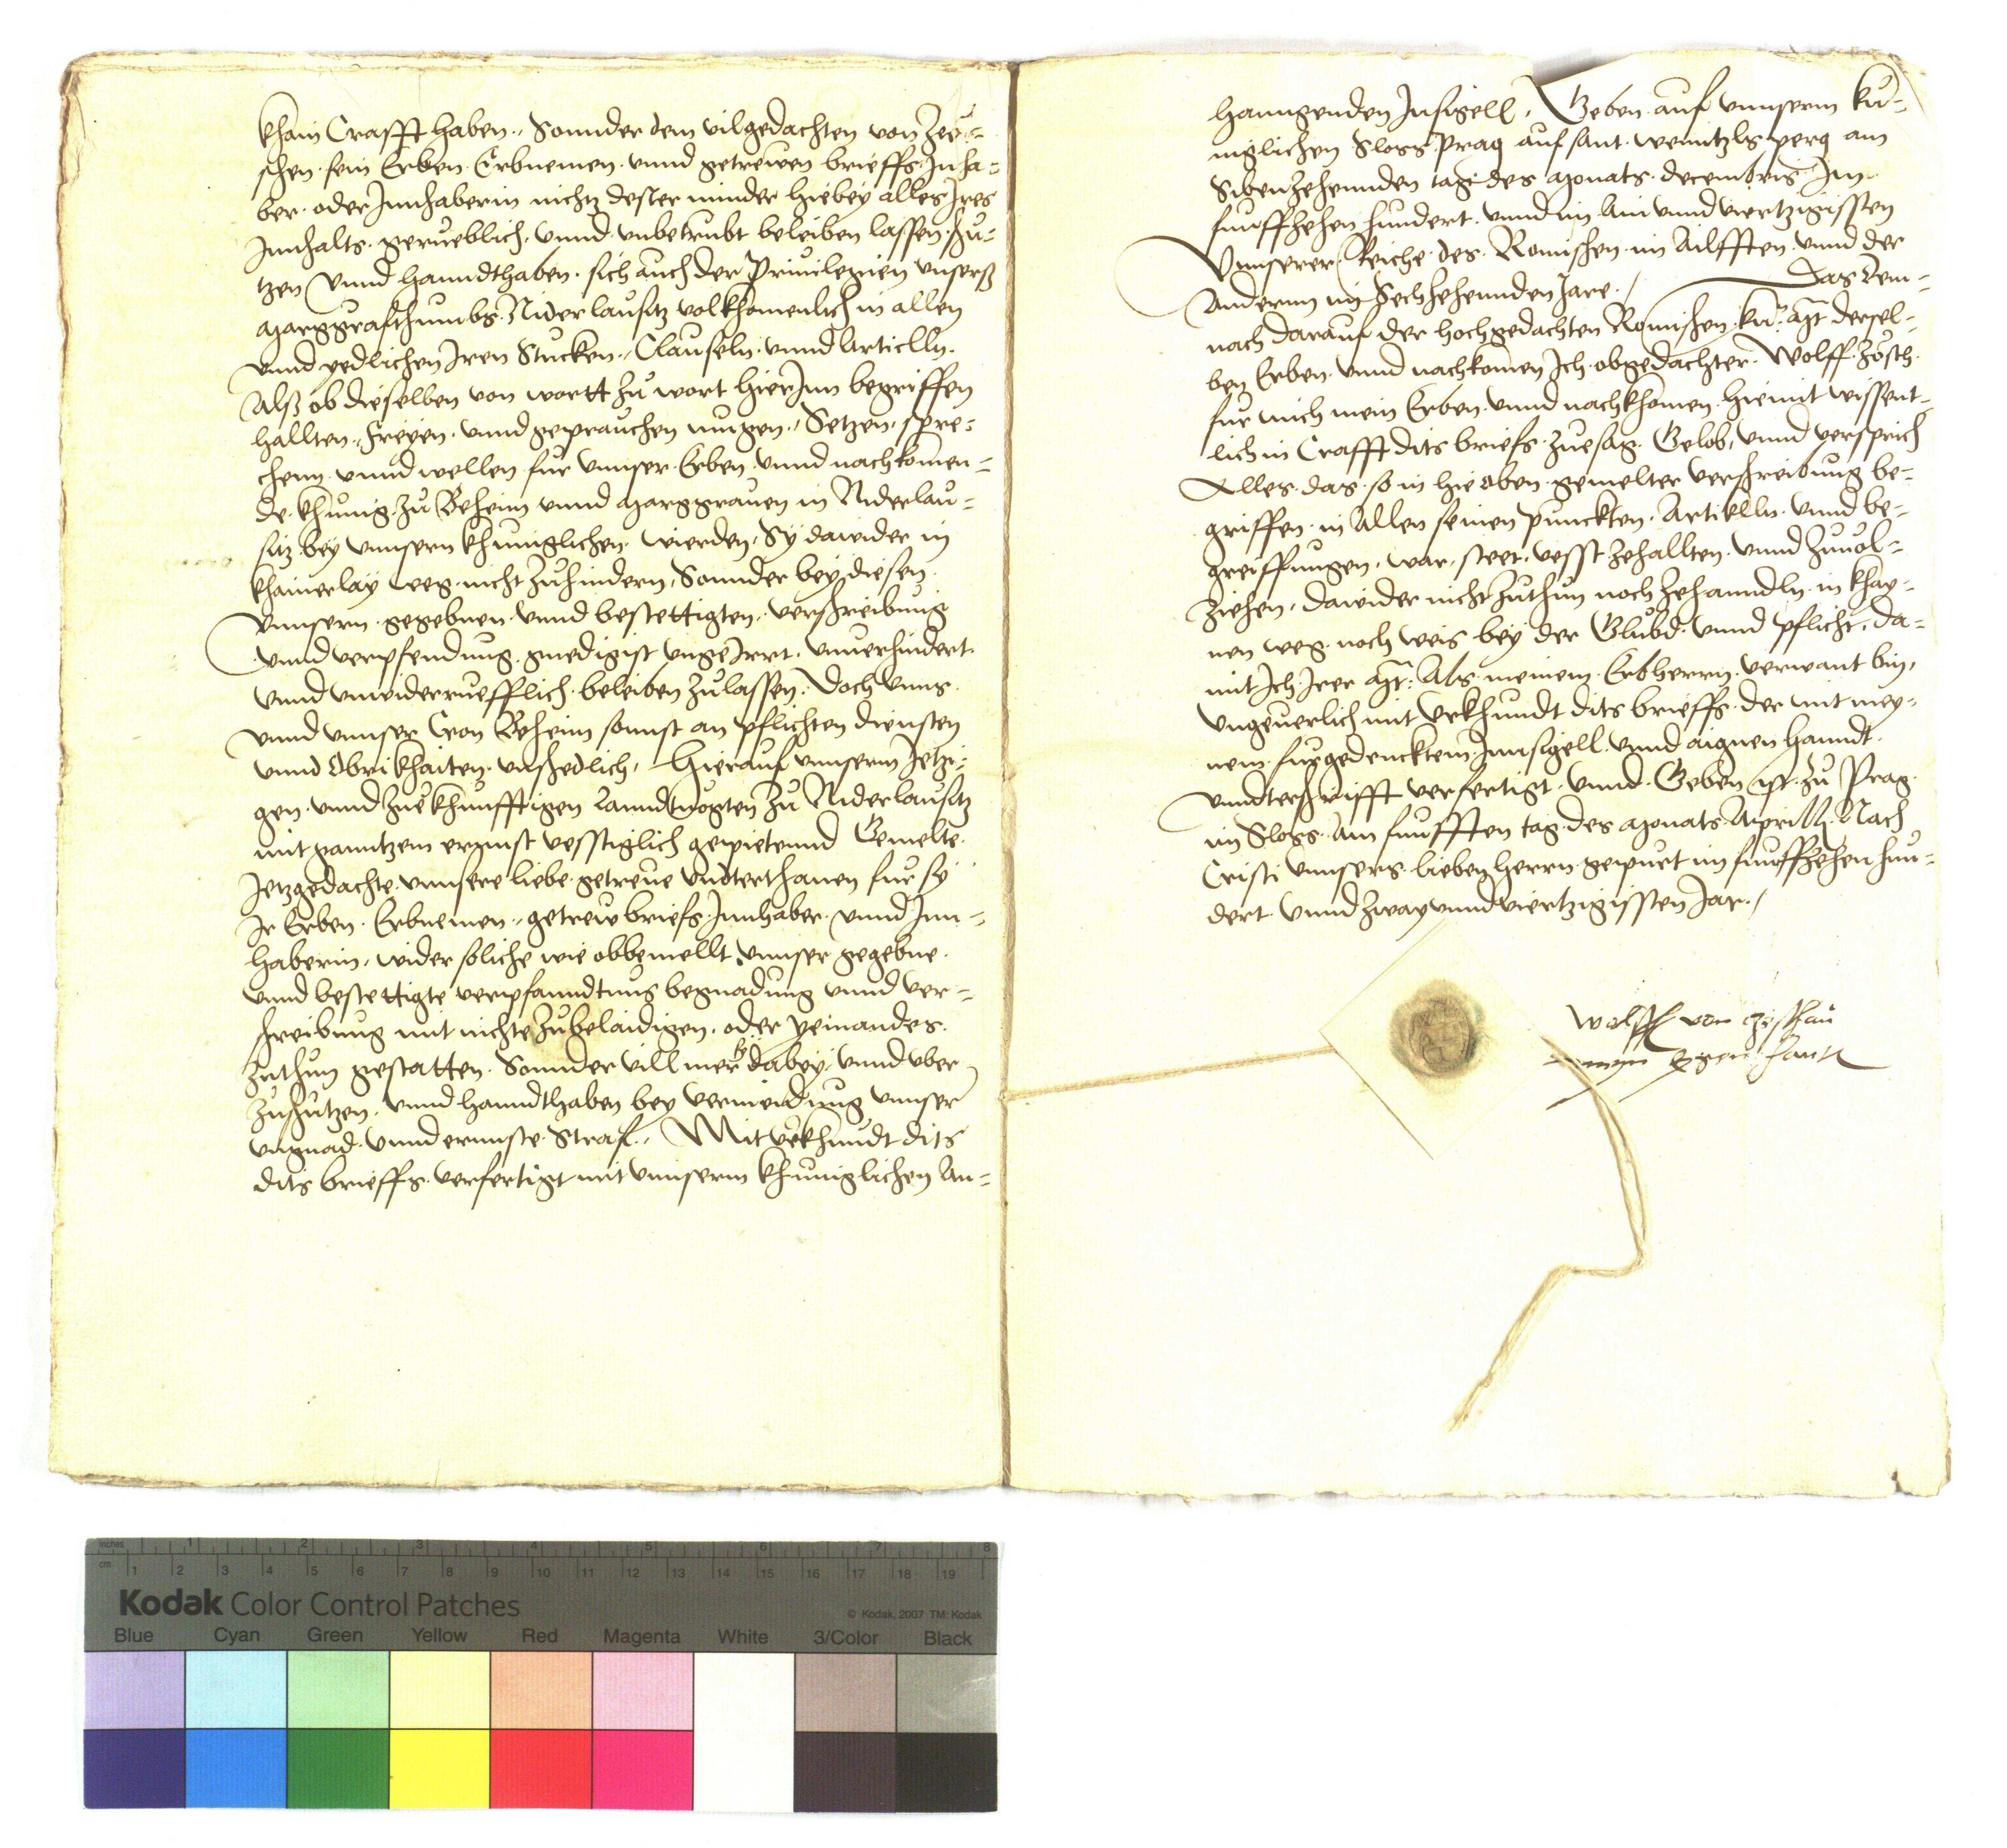 khain Crafft haben., Sonnder dem vilgedachten von Zeü=
schen. sein Erben. Erbnemen. vnnd getrewen brieffs. Inha=
ber. oder Innhaberin nichtz dester minder hiebey alles Ires
Innhalts. gerueblich. vnnd. vnbetrubt beleiben lassen. schü=
tzen vnnd hanndthaben. sich auch der Priuilegien vnserß
Marggrafthumbs. Niderlausitz volkhomenlich in allen
vnnd yedlichen Iren Stucken., Clauseln. vnnd Articlln.
Alß ob dieselben von wortt zu wort hierInn begriffen
hallten., freyen. vnnd geprauchen mugen., Setzen, spre=
chenn. vnnd wellen. fur vnnser. Erben. vnnd nachkomen=
de. khunig. zu Behem vnnd Marggrauen in Niderlau=
sitz. bey vnnsern khuniglichen. wierden, Sy dawider in
khainerlay weg. nicht zuhindern, Sonnder bey diesen
vnnsern. gegebnen. vnnd bestettigten. verschreibung
vnnd verpfendung. gnedigist vngeIrrt. vnuerhindert.
vnnd vnwiderruefflich. beleiben zulassen. Doch vnns
vnnd vnnser Cron Behem sonnst an pflichten diensten
vnnd Obrikhaiten. vnschedlich, Hierauf vnnserm Jetzi=
gen. vnnd zuekhunfftigen Lanndtuogten zu Niderlausitz
mit ganntzem ernnst vesstiglich gepietennd Gemelte.
Jetzgedachte. vnnsere liebe. getreue vnderthanen fur sy
Ir Erben. Erbnemen., getrew briefs. Innhaber. vnnd Inn=
haberin, wider soliche wie obbemellt vnnser gegebne.
vnnd bestettigte verpfanndtung begnadung vnnd ver=
schreibung mit nichte zubelaidigen, oder yemandes.
zuthun gestatten. Sonnder vill mer sy dabey, vnnd vber
zuschutzen. vnnd hanndthaben bey vermeidung vnnser
vngnad. vnnd ernnste. Straf., Mit vrkhundt dits
dits brieffs. verfertigt mit vnnserm khuniglichen An=
hanngenden Insigell, Geben. auf vnnserm ku=
niglichen Sloss. Prag auf sant. wenntzls. perg am
Sibenzehennden tag des Monats. decembris Im
funffzehen hundert. vnnd im Ain vnnd viertzigissten
Vnnserer. Reiche. des. Romischen. im Ailfften. vnnd der
Anderm im Sechzehennden Jare./ Das dem=
nach darauf der hochgedachten Romischen. ku. Mt. dersel=
ben Erben. vnnd nachkomen Ich. obgedachter. Wolff. Zosch.
fur mich mein Erben. vnnd nachkhomen. hiemit wissent=
lich in Crafft dits briefs. zuesag. Gelob, vnnd versprich
Alles. das. so in hie oben. gemelter verschreibung be=
griffen. in Allen seinen punckten. Artiklln. vnnd be=
greiffungen, war, steet, vesst zehallten. vnnd zuuol=
ziehen, dawider nicht zuthun noch zehanndln. in khay=
nen weg. noch weis. bey der Glubd. vnnd pflicht, da=
mit Ich. Irer Mt. Als meinem. Erbherrn. verwant bin,
vngeuerlich mit vrkhundt dits brieffs. der mit mey=
nem. furgedrucktem. Innsigell. vnnd aignen hanndt.
vnndterschrifft verfertigt. vnnd. Geben ist. zu Prag
im Sloss. Am funfften tag. des Monats. Aprill. Nach
Cristi vnnsers. lieben herrn. gepurt im funffzehen hun=
dert. vnnd zway vnnd viertzigissten Jar./
Wolff von
mein eigen hant
inches
cm 1 2 3 4 5 6 7 8 9 10 11 12 13 14 15 16 17 18 19
Kodak Color Control Patches
© Kodak, 2007 TM: Kodak
Blue Cyan Green Yellow Red Magenta White 3/Color Black